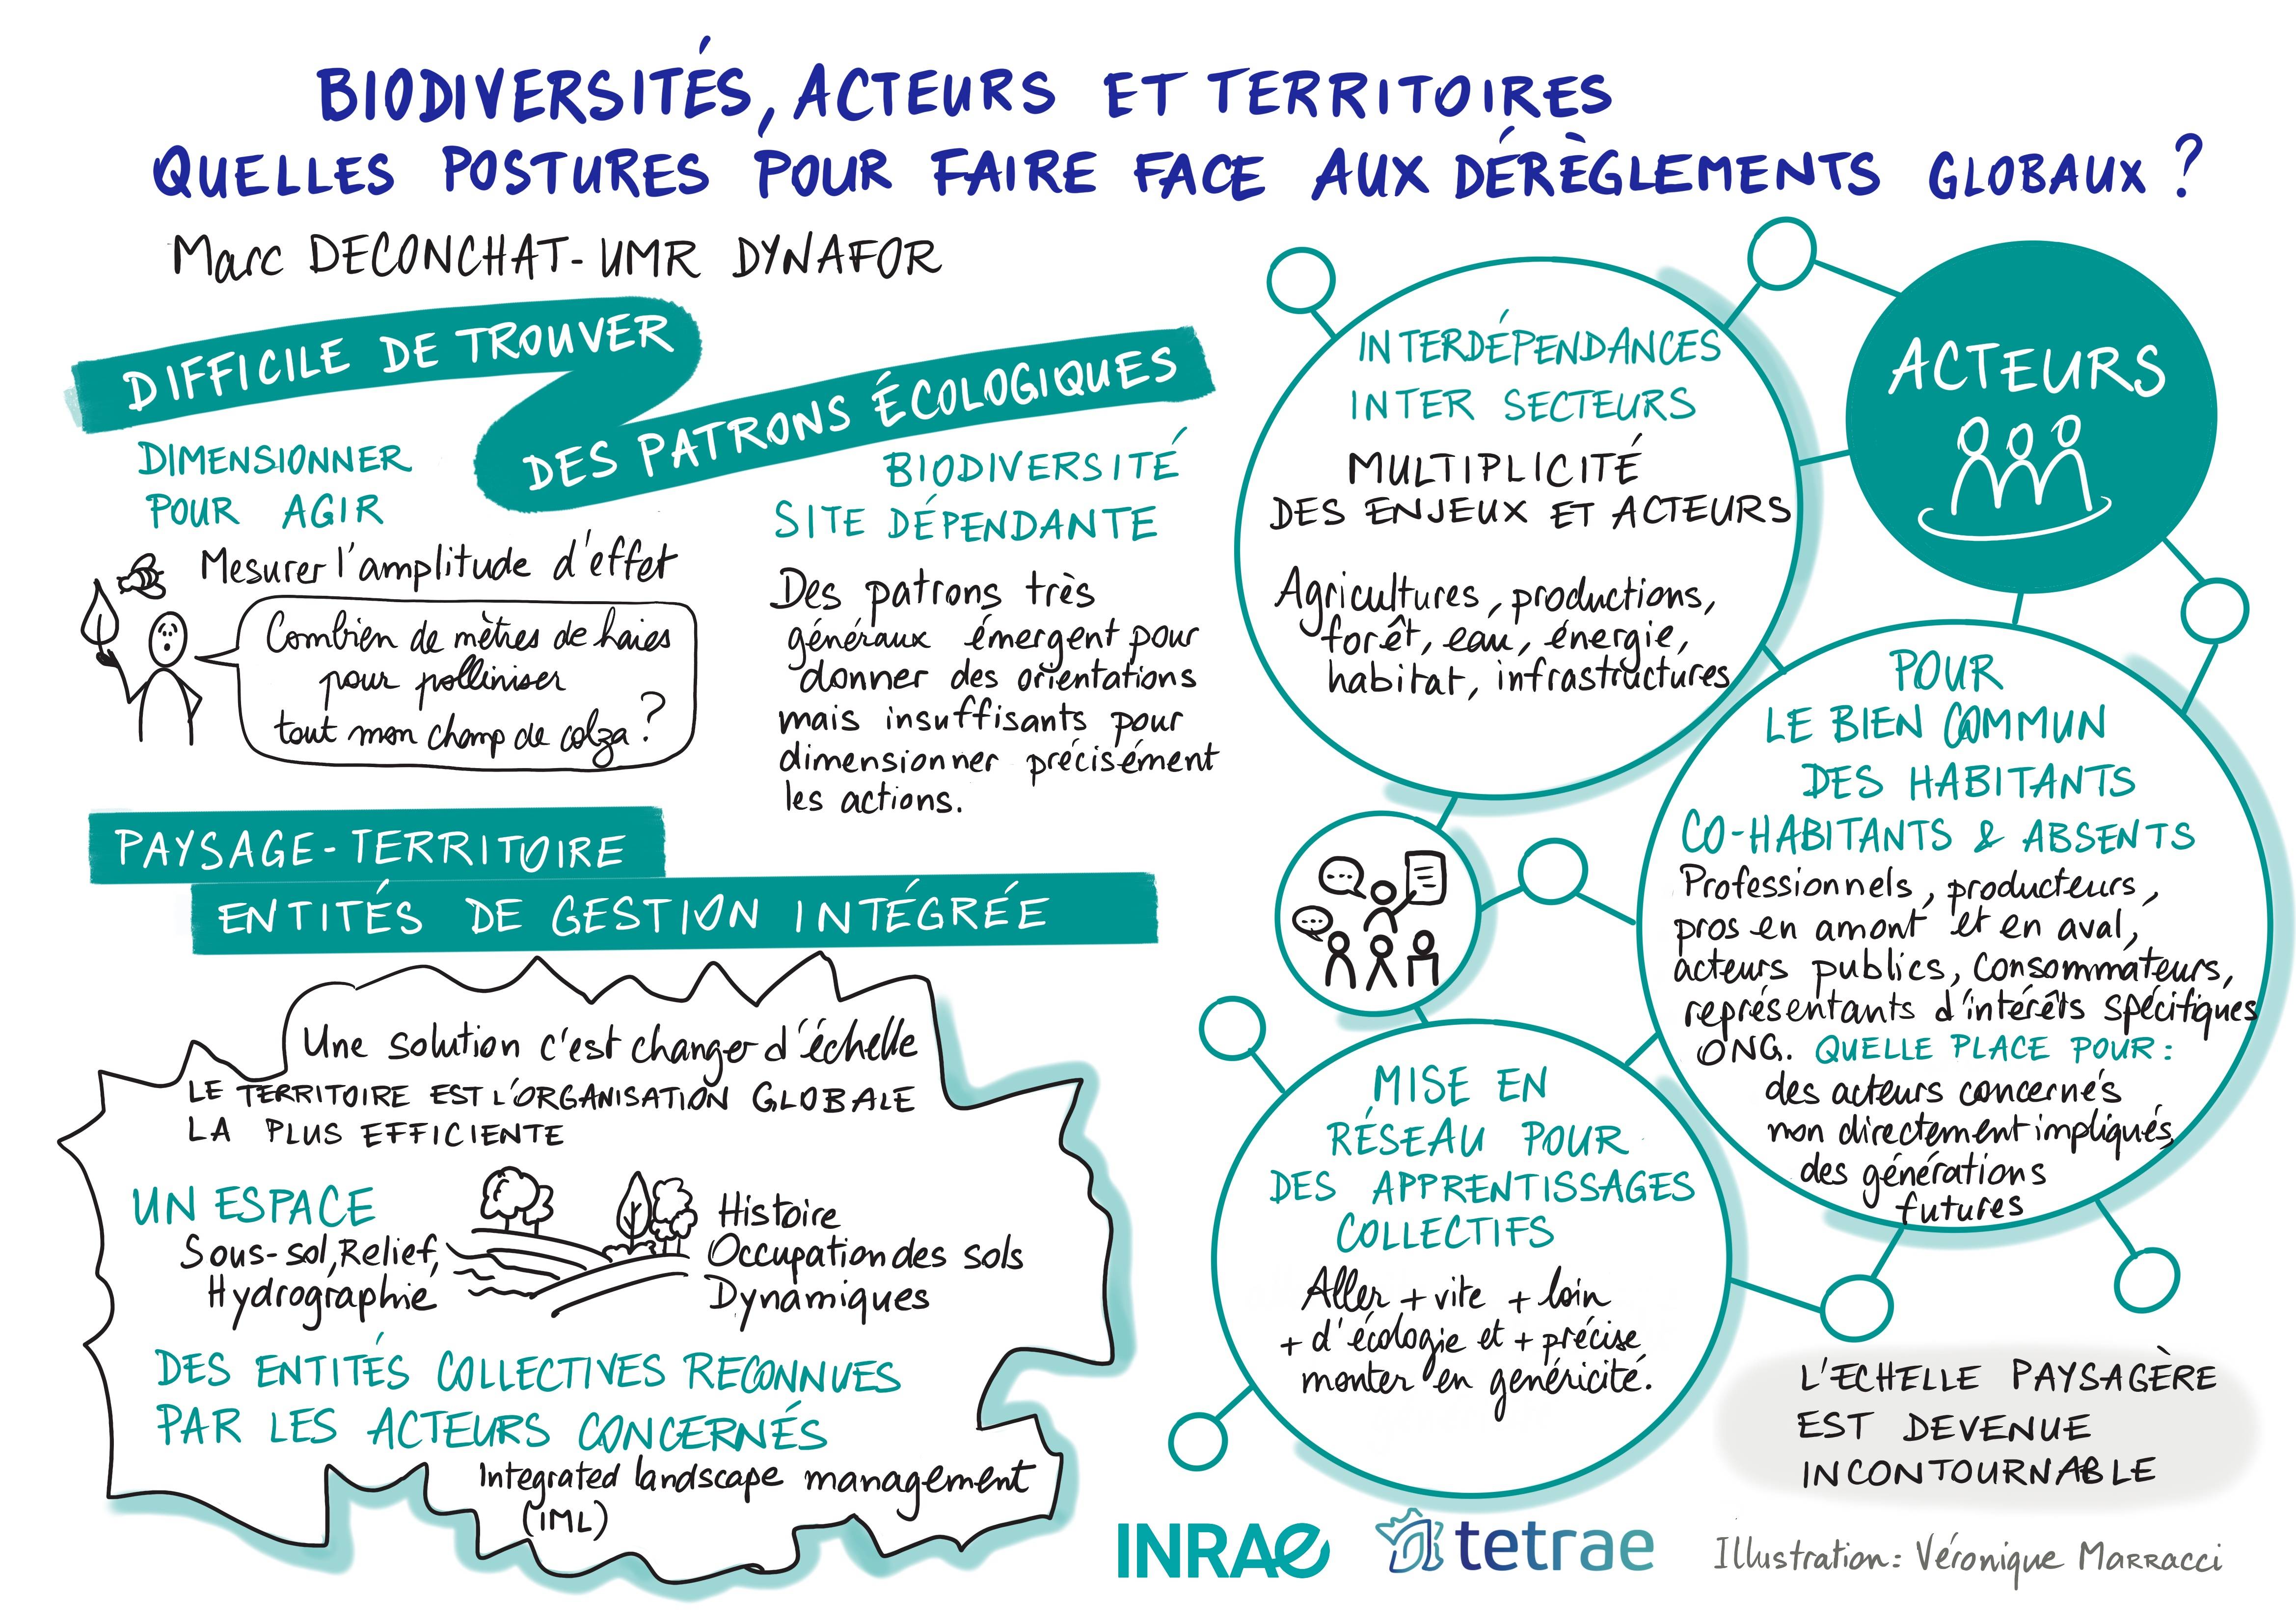 BIODIVERSITÉS, ACTEURS ET TERRITOIRES
QUELLES POSTURES POUR FAIRE FACE AUX DÉRÈGLEMENTS GLOBAUX ?
Marc DECONCHAT - UMR DYNAFOR
DIFFICILE DE TROUVER
DES PATRONS ÉCOLOGIQUES
DIMENSIONNER
POUR AGIR
Mesurer l'amplitude d'effet
Combien de mètres de haies
pour polliniser
tout mon champ de colza ?
BIODIVERSITÉ
SITE DÉPENDANTE
Des patrons très
généraux émergent pour
donner des orientations
mais insuffisants pour
dimensionner précisément
les actions.
PAYSAGE-TERRITOIRE
ENTITÉS DE GESTION INTÉGRÉE
Une solution c'est changer d'échelle
LE TERRITOIRE EST L'ORGANISATION GLOBALE
LA PLUS EFFICIENTE
UN ESPACE
Sous-sol, Relief,
Hydrographie
Histoire
Occupation des sols
Dynamiques
DES ENTITÉS COLLECTIVES RECONNUES
PAR LES ACTEURS CONCERNÉS
Integrated landscape management
(IML)
ACTEURS
INTERDÉPENDANCES
INTER SECTEURS
MULTIPLICITÉ
DES ENJEUX ET ACTEURS
Agricultures, productions,
forêt, eau, énergie,
habitat, infrastructures
POUR
LE BIEN COMMUN
DES HABITANTS
CO-HABITANTS & ABSENTS
Professionnels, producteurs,
pros en amont et en aval,
acteurs publics, consommateurs,
représentants d'intérêts spécifiques
ONG. QUELLE PLACE POUR :
des acteurs concernés
non directement impliqués,
des générations
futures
MISE EN
RÉSEAU POUR
DES APPRENTISSAGES
COLLECTIFS
Aller + vite + loin
+ d'écologie et + précise
monter en genéricité.
L'ECHELLE PAYSAGÈRE
EST DEVENUE
INCONTOURNABLE
INRAE
tetrae
Illustration : Véronique MARRACCI